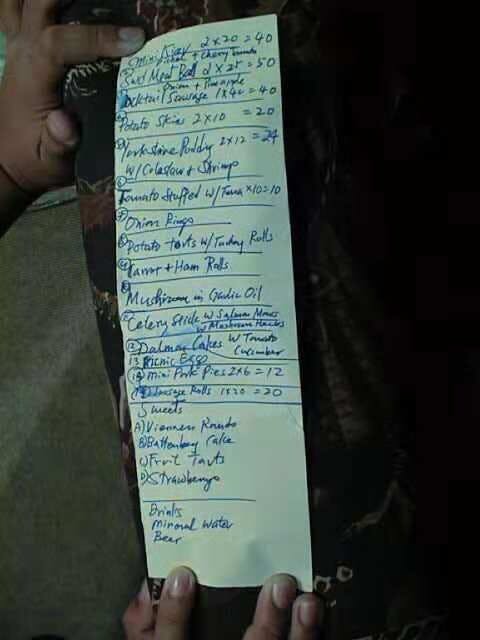 ① Mini Kiav 2x20 = 40
Pickel + Cherry Tomato
② Swd Meat Ball 2x25 = 50
Onion + Pineapple
Cocktail Sausage 1x40 = 40
④ Potato Skins 2x10 = 20
⑤ Yorkshire Puddy 2x12 = 24
W/ Coleslaw + Shrimp
⑥ Tomato Stuffed W/ Tuna x10=10
⑦ Onion Rings
⑧ Potato tarts W/ Turkey Rolls
⑨ + Ham Rolls
⑩ Mushroom in Garlic Oil
⑪ Celery Stick W Salmon Mouss
W Mushroom
⑫ Cakes W Tomato
Cucumber
13 Picnic Eggs
⑭ Mini Pork Pies 2x6 = 12
Sausage Rolls 1x20 = 20
Sweets
A) Viennese Rounds
B) Battenberg Cake
C) Fruit Tarts
D) Strawberrys
Drinks
Mineral Water
Beer